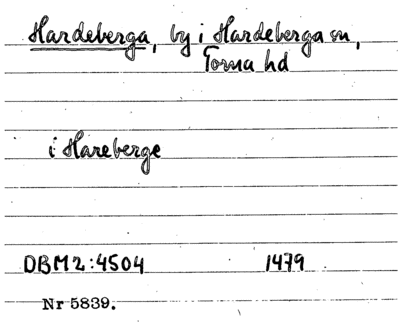 Hardeberga, by i Hardeberga sn,
Torna hd
i Hareberge
DBM2:4504 1479
Nr 5839.